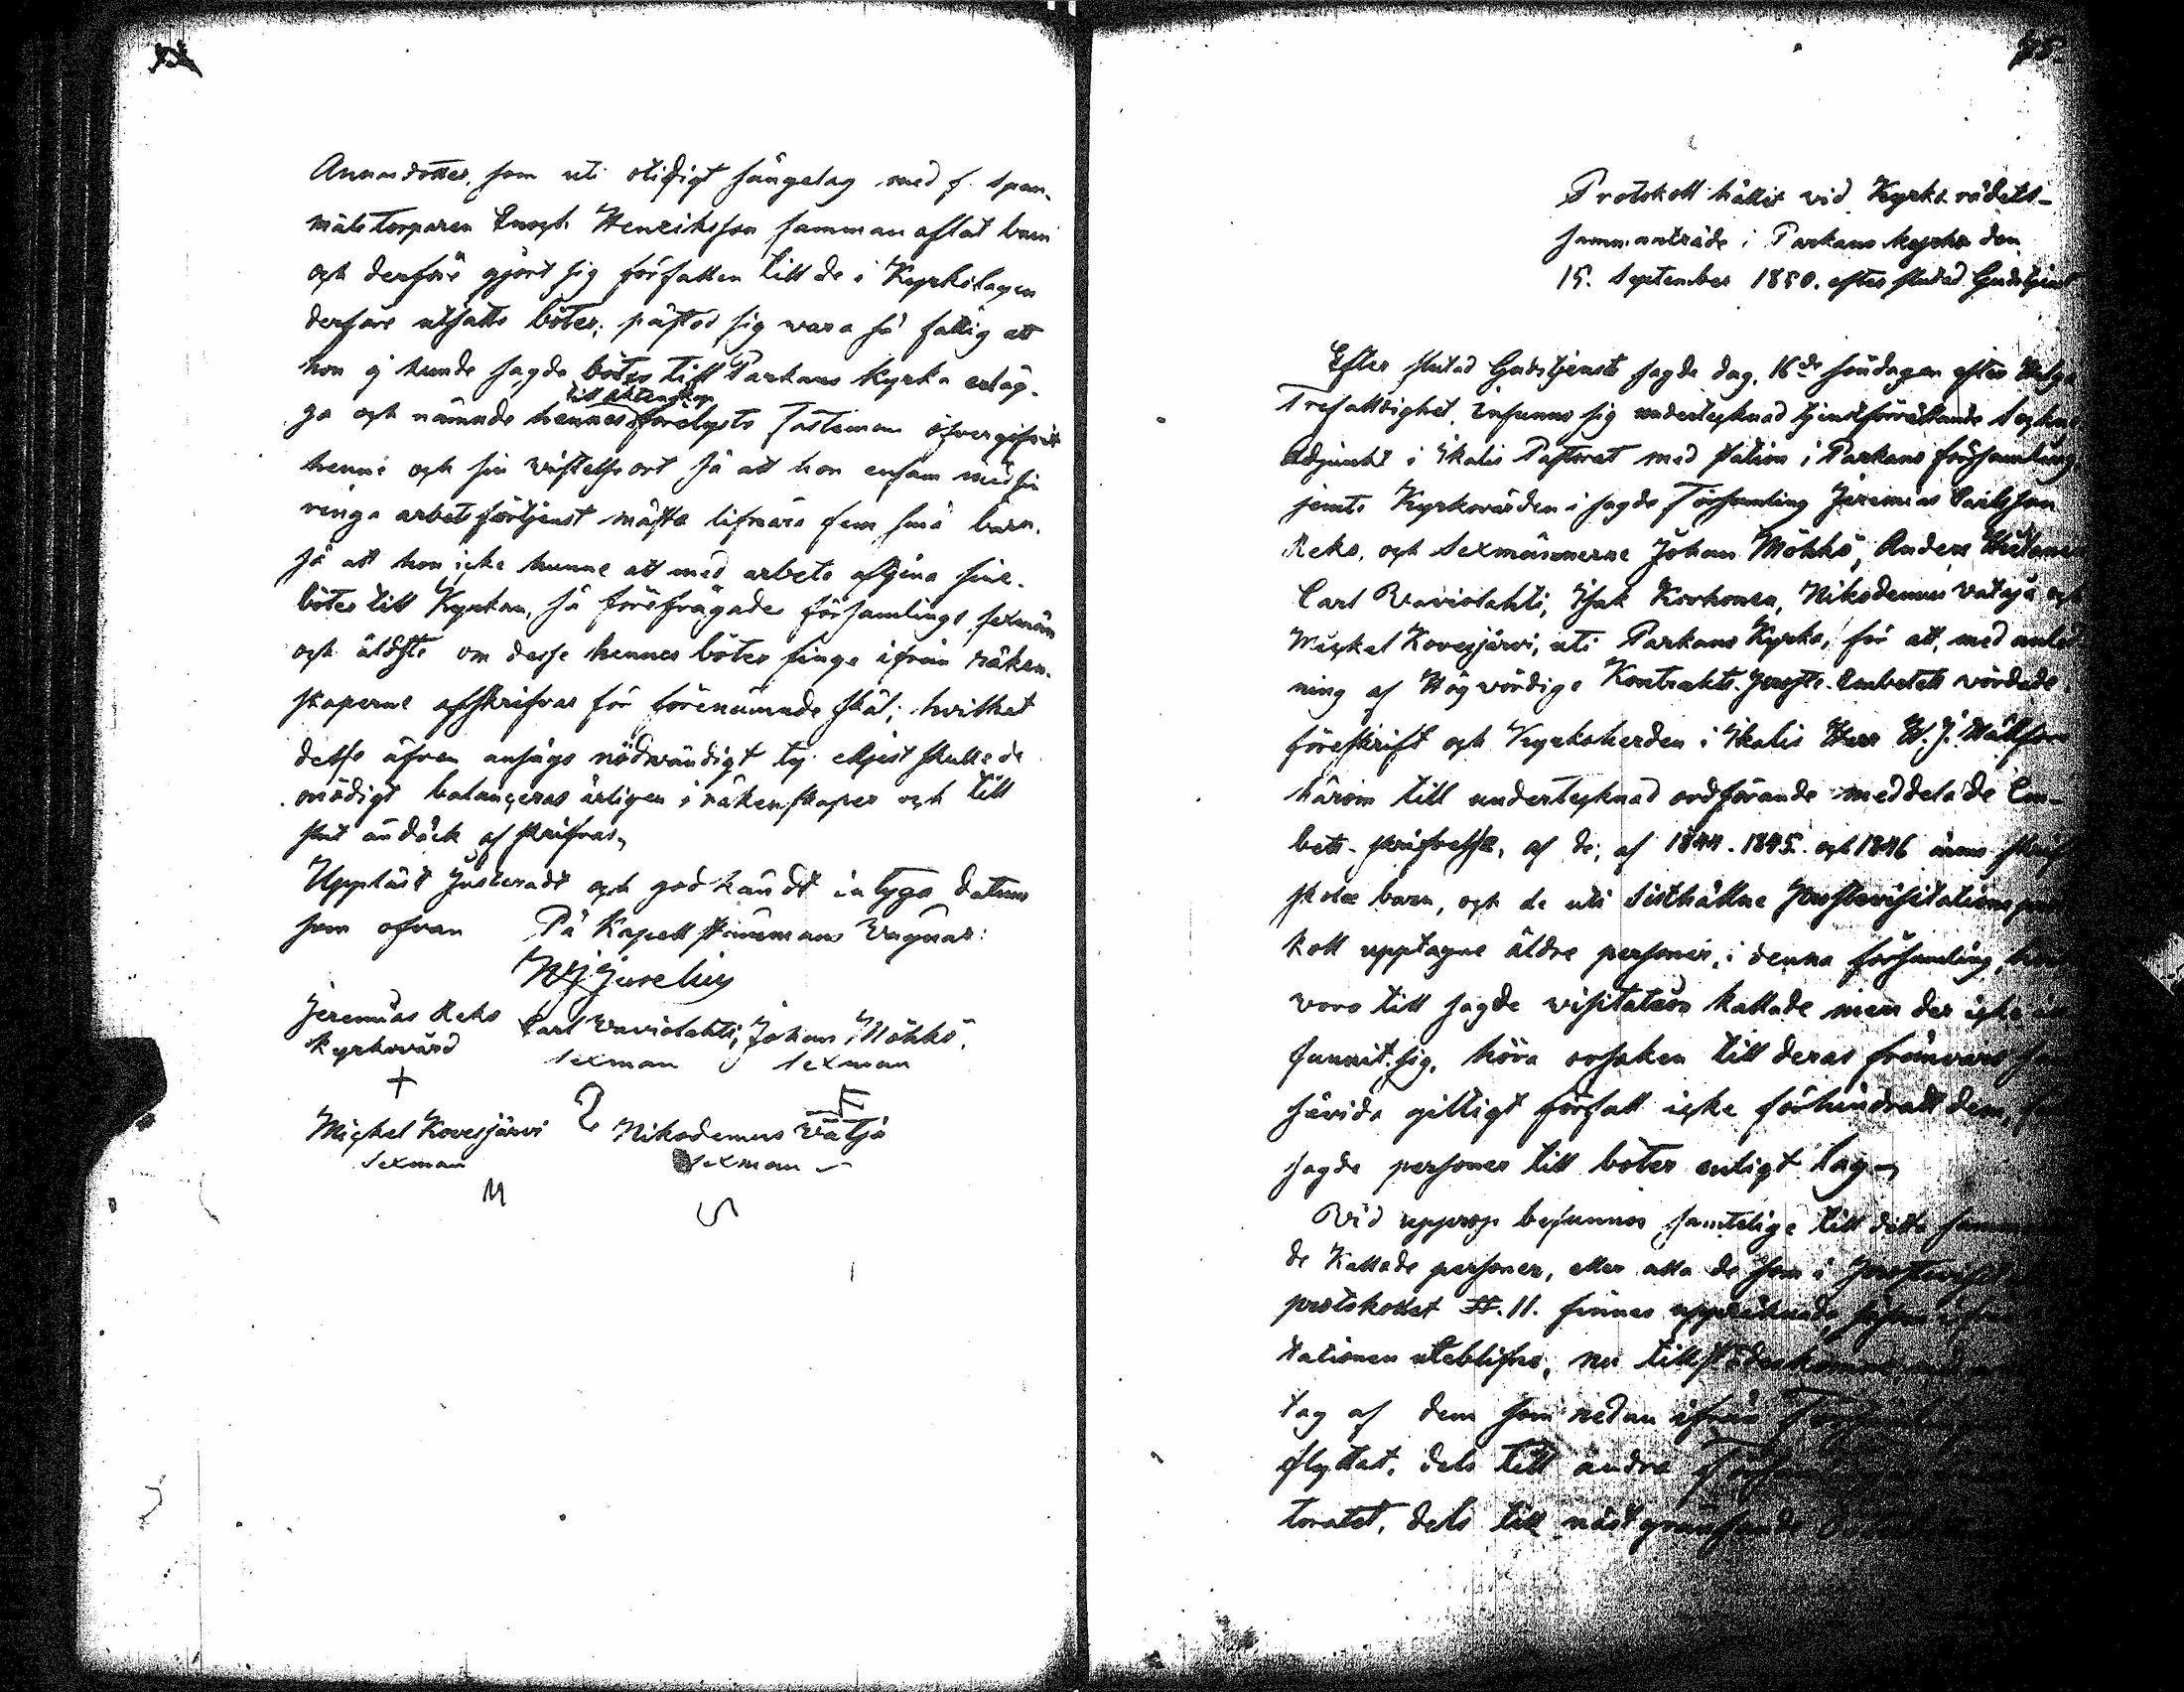 Annasdotter, som uti otidigt sängelag med f. span-
målstorparen Enoch Henriksson sammanaflat barn
och derföre gjort sig förfallen till de i Kyrkolagen
derföre utsatte böter; påstod sig vara så fattig att
hon ej kunde sagde böter till Parkano Kyrka erläg-
till äktenskap
ga och nämnde hennes förelysts fästeman öfvergifvit
henne och sin vistelse ort så att hon ensam med sin
ringa arbetsförtjenst måste lifnära fem små barn.
så att hon icke kunne att med arbete aftjena sine
böter till Kyrkan, så förefrågade församlings sexmän
och äldste om desse hennes böter finge ifrån räken-
skaperne afskrifvas för förenämnde skäl; hvilket
desse äfven ansågo nödvändigt ty eljest skulle de
onödigt balanceras årligen i räkenskaper och till
slut ändock afskrifvas,
Uppläst Justeradt och godkändt intyga datum
som ofvan På Kapellstämmans Vägnar:
W J Jurelius
Jeremias Reko Carl Vaviolahti, Johan Möhkö,
Kyrkovärd Sexman Sexman
Michel Kovesjärvi Nikodemus Vätjä
Sexman Sexman
Protokoll hållit vid Kyrko rådets-
sammanträde i Parkano kyrka den
15. September 1850. efter slutad Gudstjenst
Efter slutad Gudstjenst sagde dag, 16de söndagen efter Helga
Trefaldighet, infunno sig undertecknad tjenstförrättande Sockne
Adjunkt i Ikalis Pastorat med station i Parkano församling
jemte Kyrkovärden i sagde Församling Jeremias Carlsson
Reko, och Sexmännerne Johan Möhkö, Anders
Carl Vaviolahti, Isak Korhonen, Nikodemus Vätäjä och
Michel Kovesjärvi, uti Parkano Kyrka, för att, med anled
ning af Högvördige Kontrakts-Prosts-Embetets vördade
föreskrift och Kyrkoherden i Ikalis Herr H. J.
härom till undertecknad ordförande meddelade Em-
bets-skrifvelse, af de, af 1844. 1845. och 1846 årens skrift
skole barn, och de uti sisthållne Prostevisitations proto
koll upptagne äldre personer, i denna församling,
voro till sagde visitation kallade men der icke in
funnit sig, höra orsaken till deras frånvaro
såvida giltigt förfall icke förhindratt dem,
sagde personer till böter enligt lag,
Vid upprop befunnos samtelige till detta samman
de kallade personer, eller alla de som i Prostevisit
protokollet §. 11. finnas uppräknade,
tationen uteblifne, nu tillstädeskomne,
tag af dem som sedan ifrån
flyttat, dels till andra
toratet, dels till näst gränsande